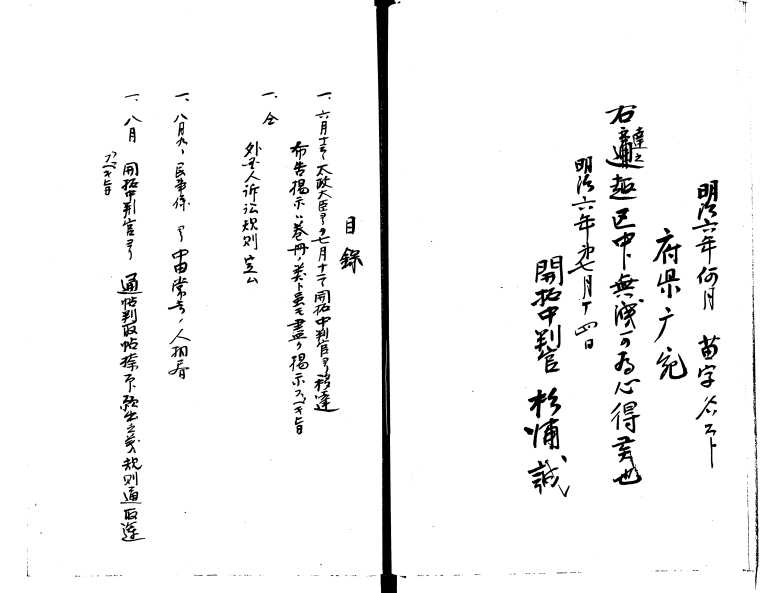 明治六年何月 苗字名
府県庁宛
右達之通趣区中無洩可為心得者也
明治六年第七月十四日
開拓中判官 杉浦誠
目録
一、六月十三日太政大臣ヨリ七月十二日開拓中判官ヨリ移達
布告掲示ハ巻冊ノ類ト雖モ盡ク掲示スベキ旨
一、仝
外国人訴訟規則
一、八月九日民事係ヨリ 中田常吉ノ人相書
一、八月 開拓中判官ヨリ 通帖判取帖 願出之義規則通取達
スベキ旨